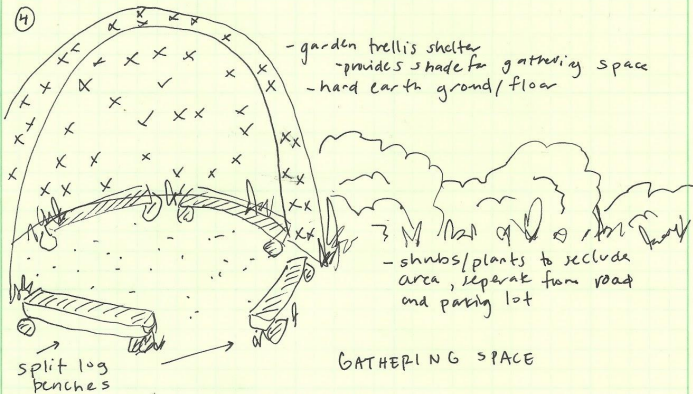 4
- garden trellis shelter
- provides shade for gathering space
- hard earth ground/floor
- shrubs/plants to seclude
area, seperate from road
and parking lot
split log
benches
GATHERING SPACE